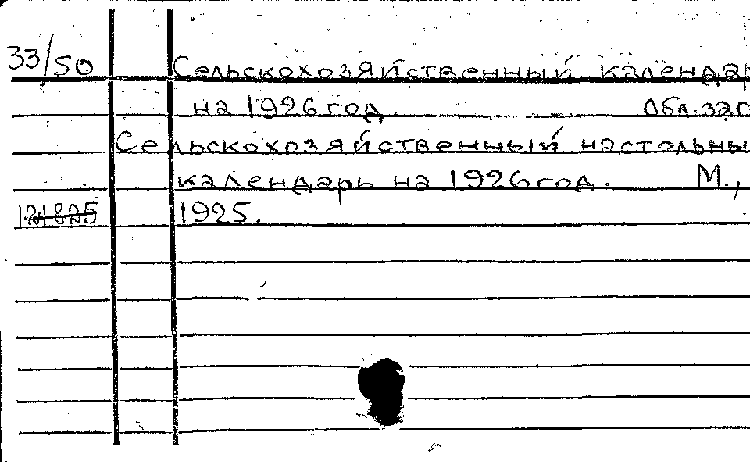 33/50 Сельскохозяйственный календар
на 1926 год. Обл. заг
Сельскохозяйственный настольны
календарь на 1926 год. М.,
1925.